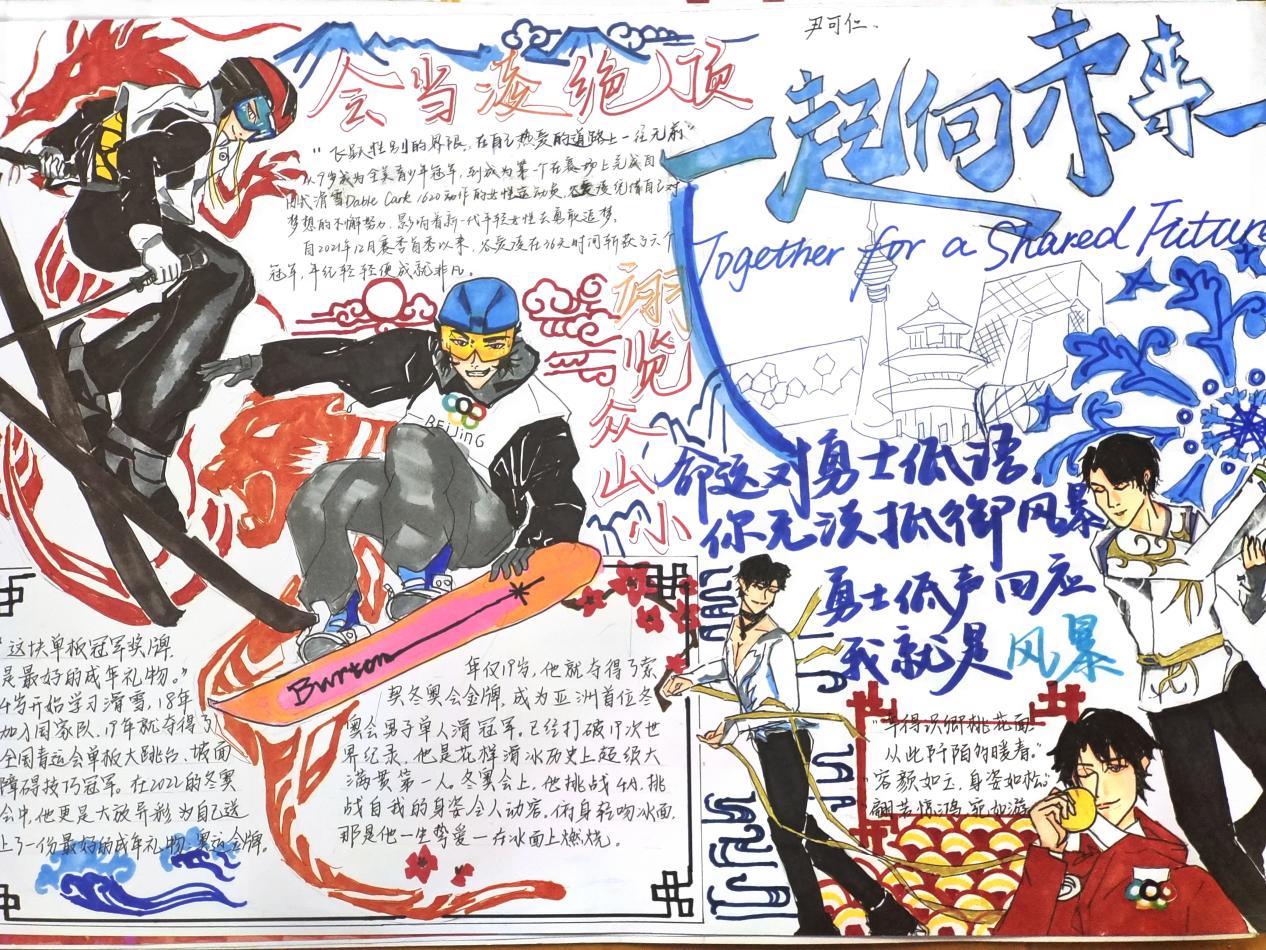 尹可仁.
会当凌绝顶
"飞跃性别的界限,在自己热爱的道路上一往无前"
从9岁成为全美青少年冠军,到成为第一个在赛场上完成自
由式滑雪Doble Cark 1620动作的女性运动员,谷爱凌凭借自己对
梦想的不懈努力,影响着新一代年轻女性去勇敢追梦。
自2021年12月赛季首秀以来,谷爱凌在36天时间斩获了六个
冠军,年纪轻轻便成就非凡。
一览众山小
一起向未来
Together for a Shared Future
命运对勇士低语,
你无法抵御风暴
勇士低声回应
我就是风暴
BEIJING
Burton
"这块单板冠军奖牌,
是最好的成年礼物。"
4岁开始学习滑雪,18年
加入国家队,19年就夺得了
全国青运会单板大跳台、坡面
障碍技巧冠军。在2022的冬奥
会中,他更是大放异彩为自己送
上了一份最好的成年礼物:奥运金牌。
年仅19岁,他就夺得了索
契冬奥会金牌,成为亚洲首位冬
奥会男子单人滑冠军。已经打破19次世
界纪录,他是花样滑冰历史上超级大
满贯第一人。冬奥会上,他挑战4A,挑
战自我的身姿令人动容,俯身轻吻冰面,
那是他一生挚爱一在冰面上燃烧。
幸得识卿桃花面
从此阡陌多暖春。"
"容颜如玉,身姿如松"
翩若惊鸿,宛如游